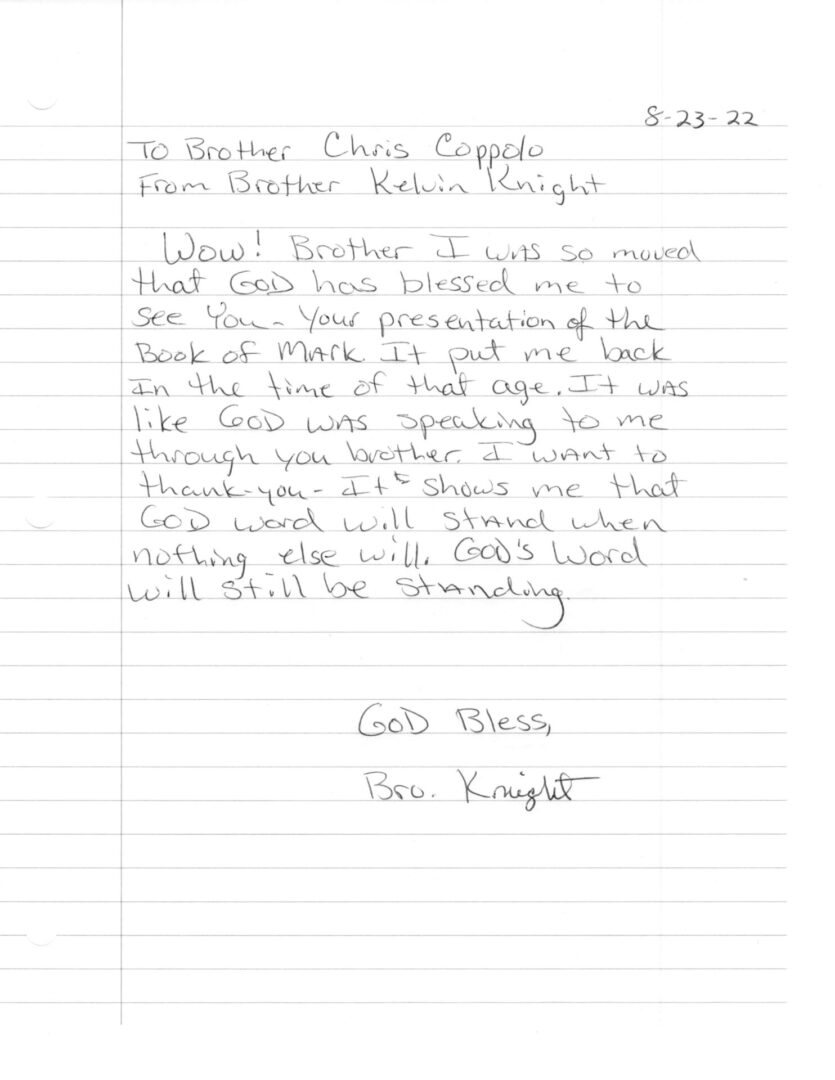 8-23-22
To Brother Chris Coppolo
From Brother Kelvin Knight
Wow! Brother I was so moved
that GOD has blessed me to
see You - Your presentation of the
Book of MArk. It put me back
In the time of that age. It was
like GOD was speaking to me
through you brother. I want to
thank-you - Its shows me that
GOD word will stand when
nothing else will. GOD's Word
will still be standing.
GOD Bless,
Bro. Knight